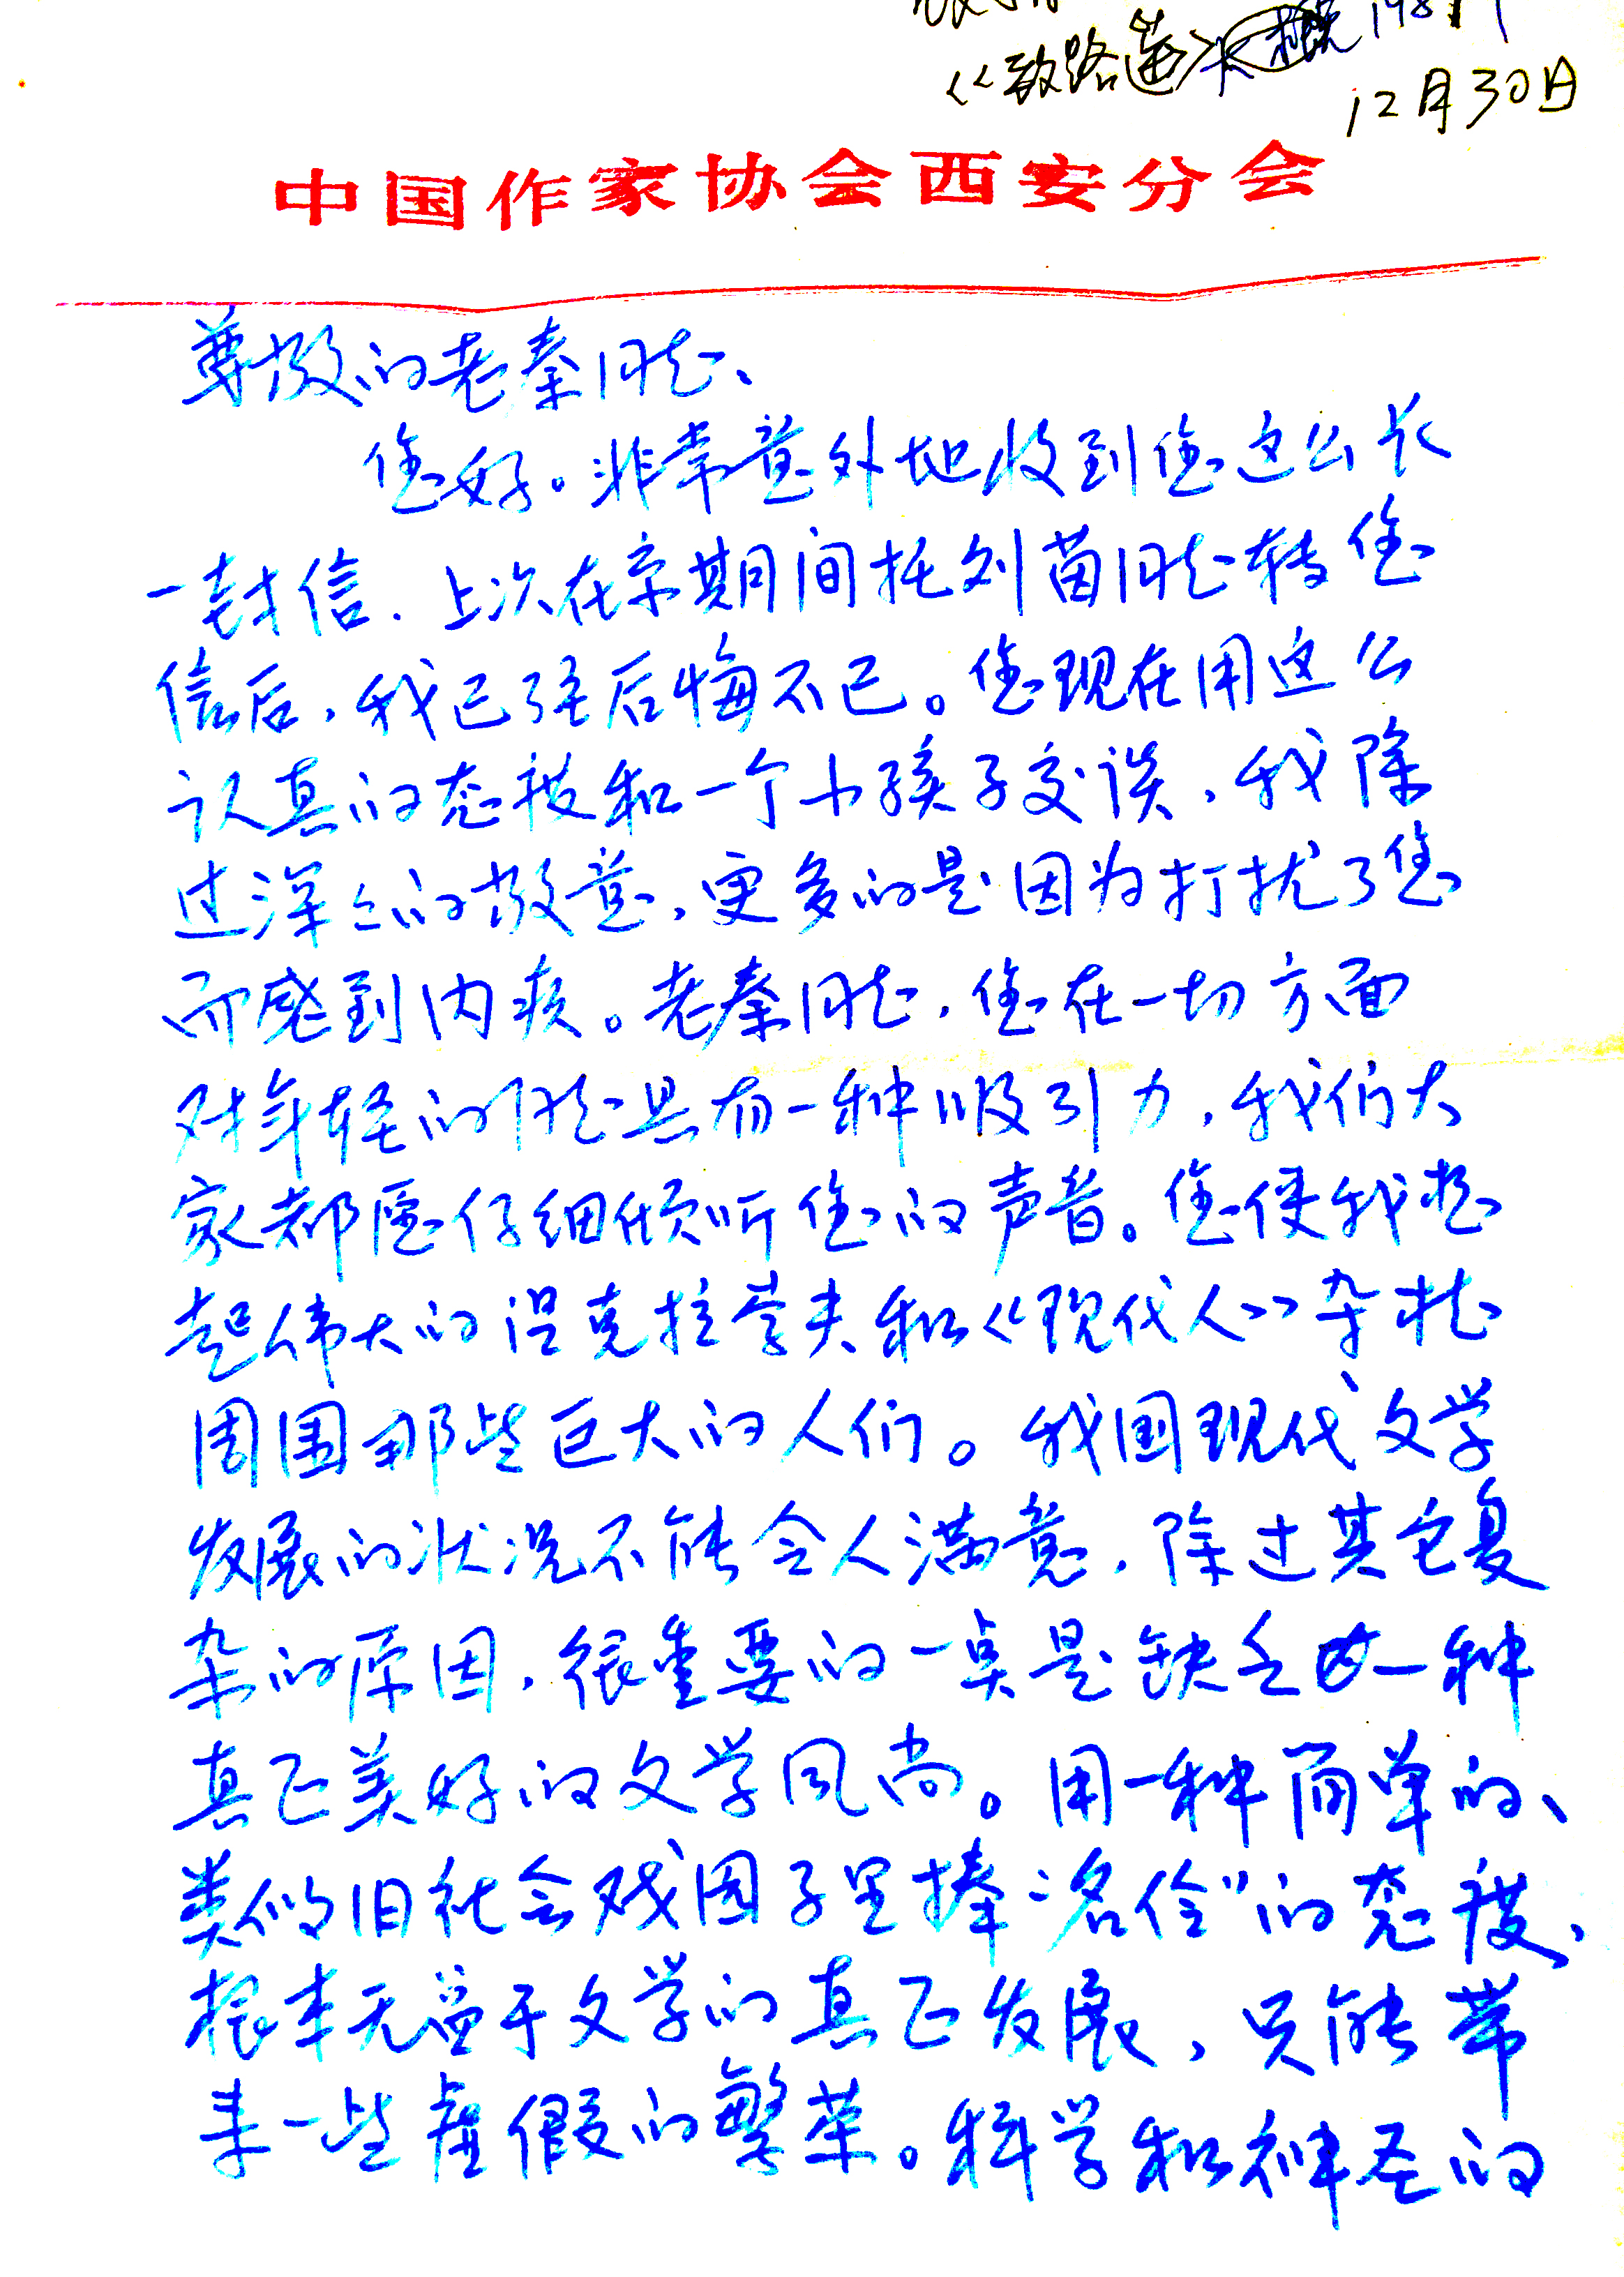 《致路遥》
12月30日
中国作家协会西安分会
尊敬的老秦同志、
您好。非常意外地收到您这么长
一封信.上次在京期间托刘茵同志转您
信后,我已经后悔不已。您现在用这么
认真的态度和一个小孩子交谈,我除
过深々的敬意,更多的是因为打扰了您
而感到内疚。老秦同志,您在一切方面
对年轻的同志具有一种吸引力,我们大
家都愿仔细倾听您的声音。您使我想
起伟大的涅克拉索夫和《现代人》杂志
周围那些巨大的人们。我国现代文学
发展的状况不能令人满意,除过其它复
杂的原因,很重要的一点是缺乏一种
真正美好的文学风尚。用一种简单的、
类似旧社会戏园子里捧“名伶”的态度,
根本无益于文学的真正发展,只能带
来一些虚假的繁荣。科学和神圣的